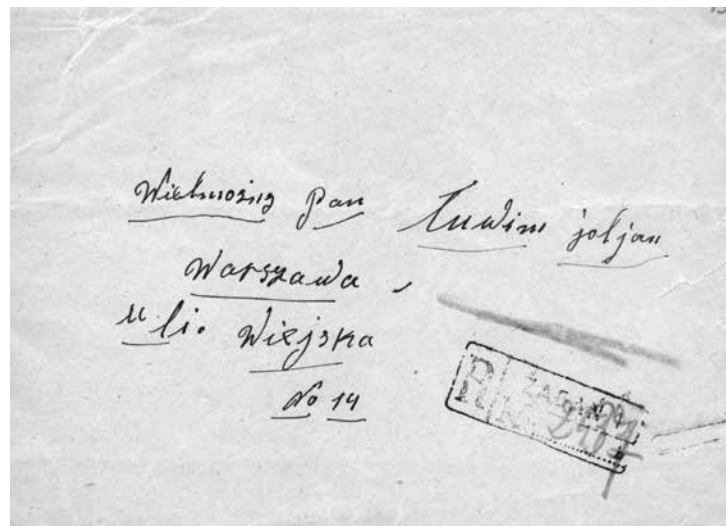 Wielmożny Pan Tuwim joljan
Warszawa
Uli. Wiejska
No 14
R ŻAGAŃ